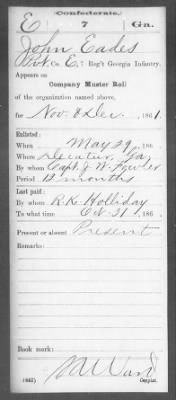 Confederate.
E 7 Ga.
John Eades
Pvt, Co. E, 7 Reg't Georgia Infantry.
Appears on
Company Muster Roll
of the organization named above,
for Nov. & Dec., 1861.
Enlisted:
When May 29, 186 .
Where Decatur, Ga
By whom Capt. J. W. Fowler
Period 12 months
Last paid:
By whom R. K. Holliday
To what time Oct. 31, 186 .
Present or absent Present
Remarks:
Book mark:
(642) Copyist.